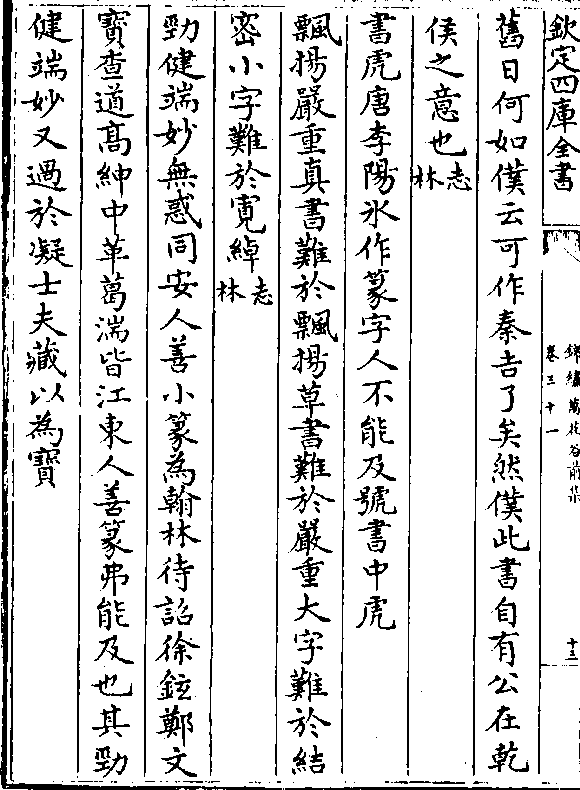 欽定四庫全書
錦繡萬花谷前集
卷三十一
十三
舊日何如僕云可作秦吉了矣然僕此書自有公在乾
侯之意也志林
書虎唐李陽氷作篆字人不能及號書中虎
飄揚嚴重真書難於飄揚草書難於嚴重大字難於結
宻小字難於寛綽志林
勁健端妙無惑同安人善小篆為翰林待詔徐鉉鄭文
寳查道高紳中革葛湍皆江東人善篆弗能及也其勁
健端妙又過於凝士夫藏以為寳